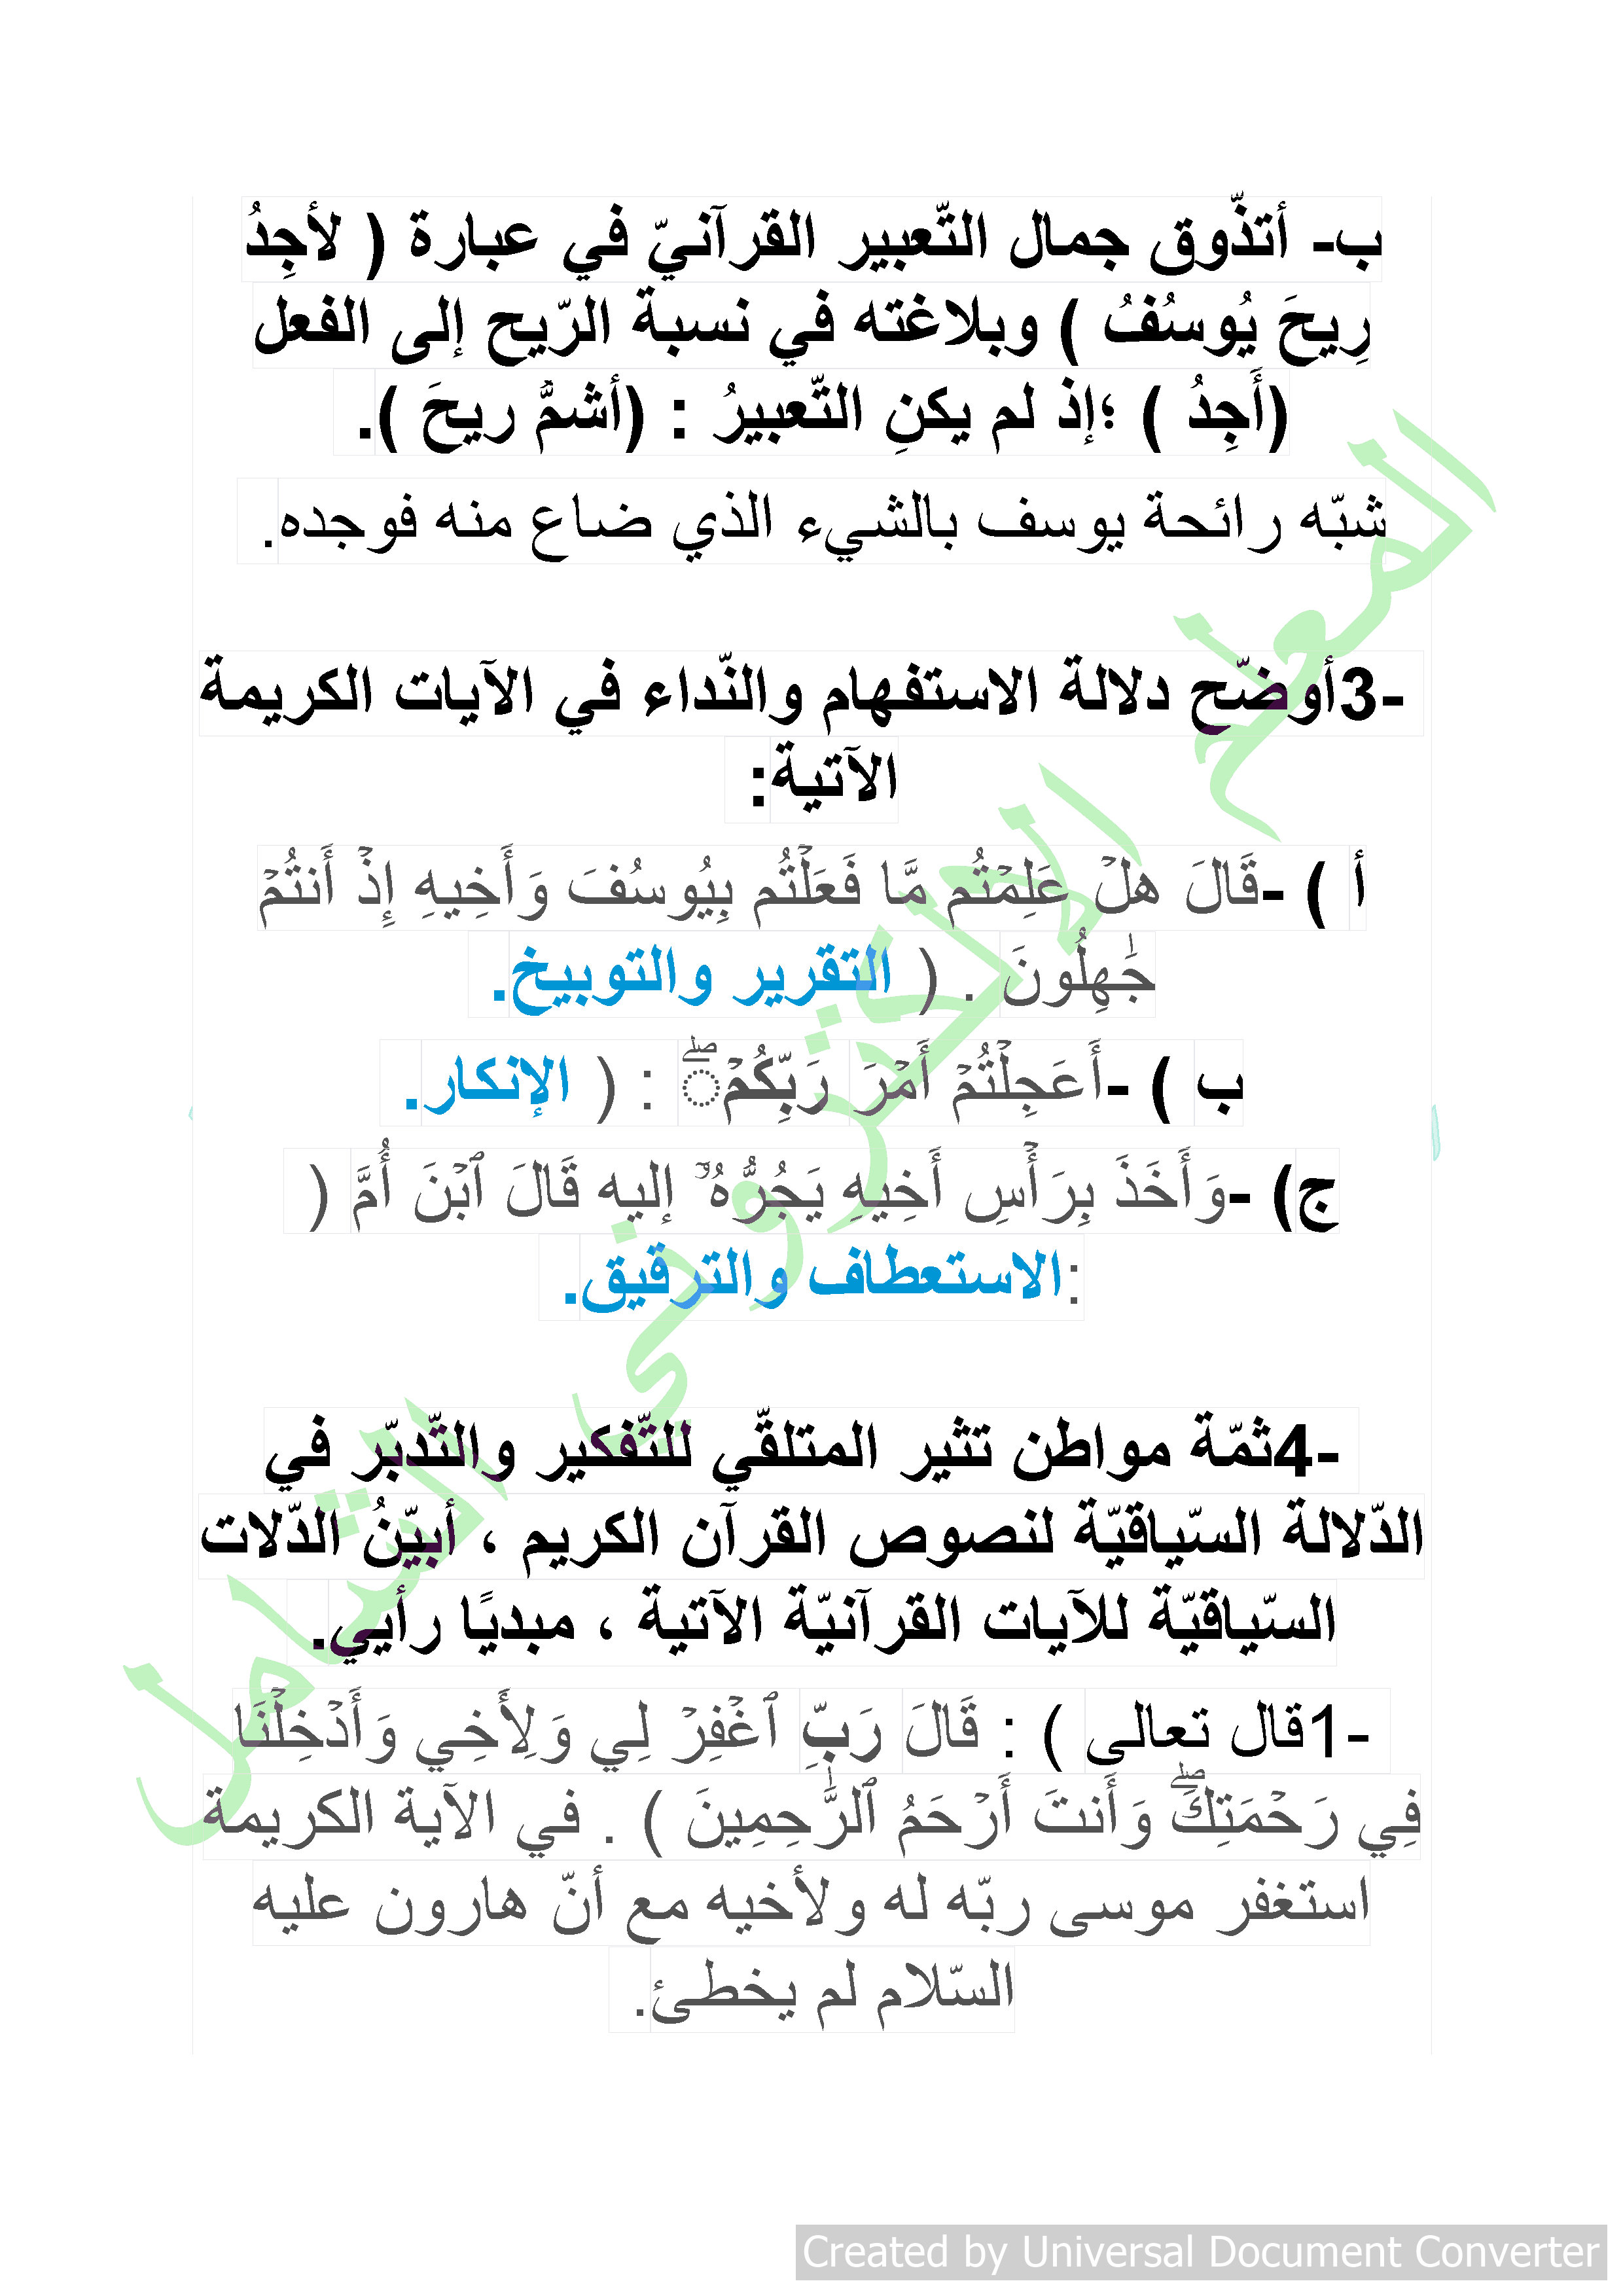 ب- أتذّوق جمال التّعبير القرآنيّ في عبارة ( لأجِدُ
رِيحَ يُوسُفُ ) وبلاغته في نسبة الرّيح إلى الفعل
(أَجِدُ ) ؛إذ لم يكنِ التّعبيرُ : (أشمُّ ريحَ ).
شبّه رائحة يوسف بالشيء الذي ضاع منه فوجده.
-3أوضّح دلالة الاستفهام والنّداء في الآيات الكريمة
الآتية:
أ ) -قَالَ هَلۡ عَلِمۡتُم مَّا فَعَلۡتُم بِيُوسُفَ وَأَخِيهِ إِذۡ أَنتُمۡ
جَٰهِلُونَ . ( التقرير والتوبيخ.
ب ) -أَعَجِلۡتُمۡ أَمۡرَ رَبِّكُمۡۖ : ( الإنكار.
ج) -وَأَخَذَ بِرَأۡسِ أَخِيهِ يَجُرُّهُۥٓ إليه قَالَ ٱبۡنَ أُمَّ (
:الاستعطاف والترقيق.
-4ثمّة مواطن تثير المتلقّي للتّفكير والتّدبّر في
الدّلالة السّياقيّة لنصوص القرآن الكريم ، أبيّنُ الدّلات
السّياقيّة للآيات القرآنيّة الآتية ، مبديًا رأيي.
-1قال تعالى ) : قَالَ رَبِّ ٱغۡفِرۡ لِي وَلِأَخِي وَأَدۡخِلۡنَا
فِي رَحۡمَتِكَۖ وَأَنتَ أَرۡحَمُ ٱلرَّٰحِمِينَ ) . في الآية الكريمة
استغفر موسى ربّه له ولأخيه مع أنّ هارون عليه
السّلام لم يخطئ.
المعلم الالكتروني الشامل
Created by Universal Document Converter